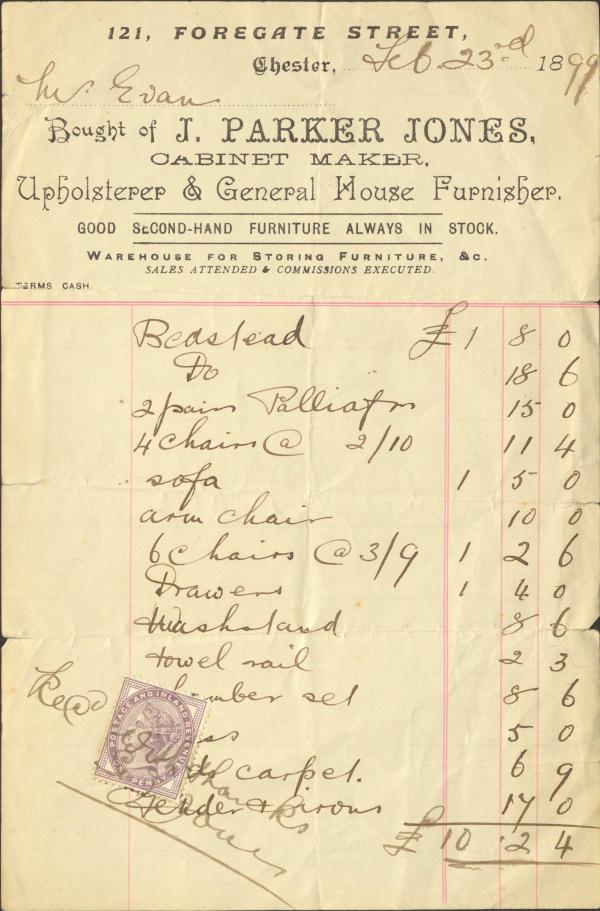 121, FOREGATE STREET,
Chester, Feb. 23rd 1899
Mr Evans
Bought of J. PARKER JONES,
CABINET MAKER,
Upholsterer & General House Furnisher.
GOOD SECOND-HAND FURNITURE ALWAYS IN STOCK.
WAREHOUSE FOR STORING FURNITURE, &c.
SALES ATTENDED & COMMISSIONS EXECUTED.
TERMS CASH.
Bedstead £1 8 0
Do 18 6
2 pairs 15 0
4 chairs @ 2/10 11 4
sofa 1 5 0
arm chair 10 0
6 chairs @ 3/9 1 2 6
Drawers 1 4 0
Washstand 8 6
towel rail 2 3
Recd mber set 8 6
ss 5 0
ds carpet. 6 9
Fender & irons 17 0
£10 2 4
POSTAGE AND INLAND REVENUE
ONE PENNY
thanks
Jones